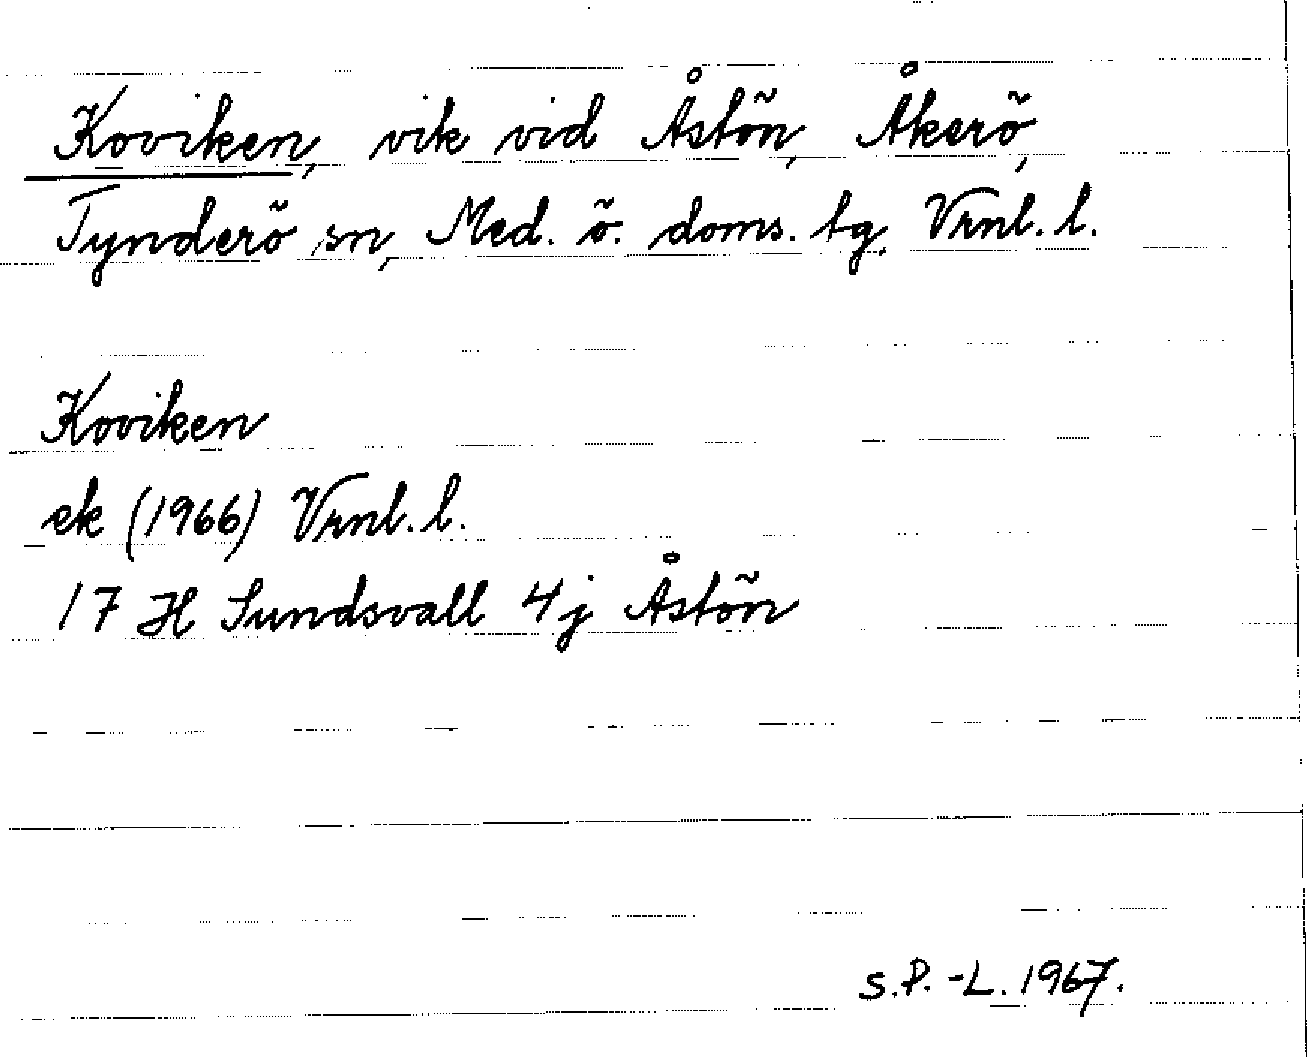 Koviken, vik vid Åstön, Åkerö,
Tynderö sn, Med. ö. doms. tg. Vrnl. l.
Koviken
ek (1966) Vrnl. l.
17 H Sundsvall 4j Åstön
S.P.-L. 1967.